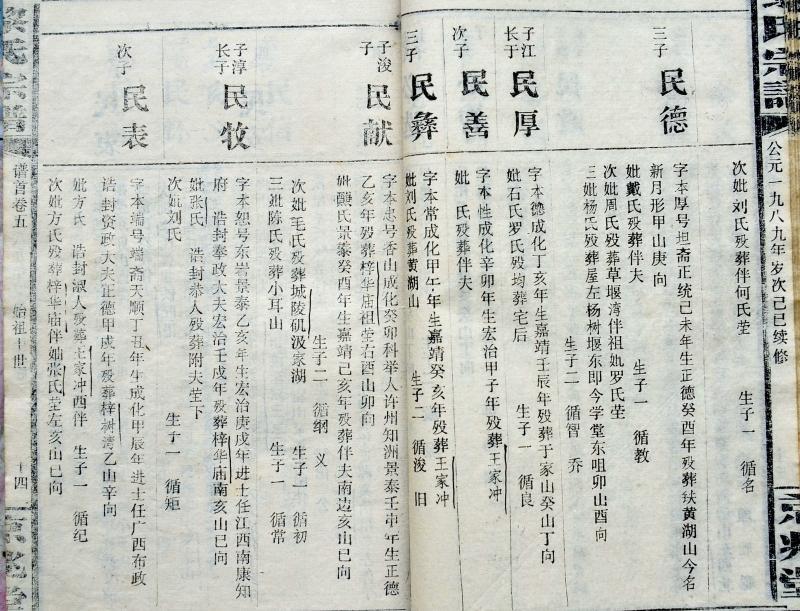 氏宗譜
公元一九八九年岁次己巳续修
京兆堂
次妣刘氏殁葬伴何氏茔 生子一 循名
三子 民德
字本厚号坦斋正统己未年生正德癸酉年殁葬铁黄湖山今名
新月形甲山庚向
妣戴氏殁葬伴夫 生子一 循教
次妣周氏殁葬草堰湾伴祖妣罗氏茔
三妣杨氏殁葬屋左杨树堰东即今学堂东咀卯山酉向
生子二 循智 乔
子江长子 民厚
字本德成化丁亥年生嘉靖壬辰年殁葬于家山癸山丁向
妣石氏罗氏殁均葬宅后 生子一 循良
次子 民善
字本性成化辛卯年生宏治甲子年殁葬王家冲
妣 氏殁葬伴夫
三子 民彝
字本常成化甲午年生嘉靖癸亥年殁葬王家冲
妣刘氏殁葬黄湖山 生子二 循浚 旧
子浚子 民献
字本忠号香山成化癸卯科举人许州知洲景泰壬申年生正德
乙亥年殁葬梓华庙祖茔右酉山卯向
妣酸氏景泰癸酉年生嘉靖己亥年殁葬伴夫南边亥山巳向
生子二 循纲 义
次妣毛氏殁葬城陵矶汲家湖 生子一 循初
三妣陈氏殁葬小耳山 生子一 循常
子淳长子 民牧
字本恕号东岩景泰乙亥年生宏治庚戌年进士任江西南康知
府 诰封奉政大夫宏治壬戌年殁葬梓华庙南亥山巳向
妣张氏 诰封恭人殁葬附夫茔下
次妣刘氏 生子一 循矩
次子 民表
字本端号端斋天顺丁丑年生成化甲辰年进士任广西布政
诰封资政大夫正德甲戌年殁葬梓树湾乙山辛向
妣方氏 诰封淑人殁葬王家冲西伴 生子一 循纪
次妣方氏殁葬梓华庙伴妯张氏茔左亥山巳向
黎氏宗譜
谱首卷五
始祖十世
十四
京兆堂